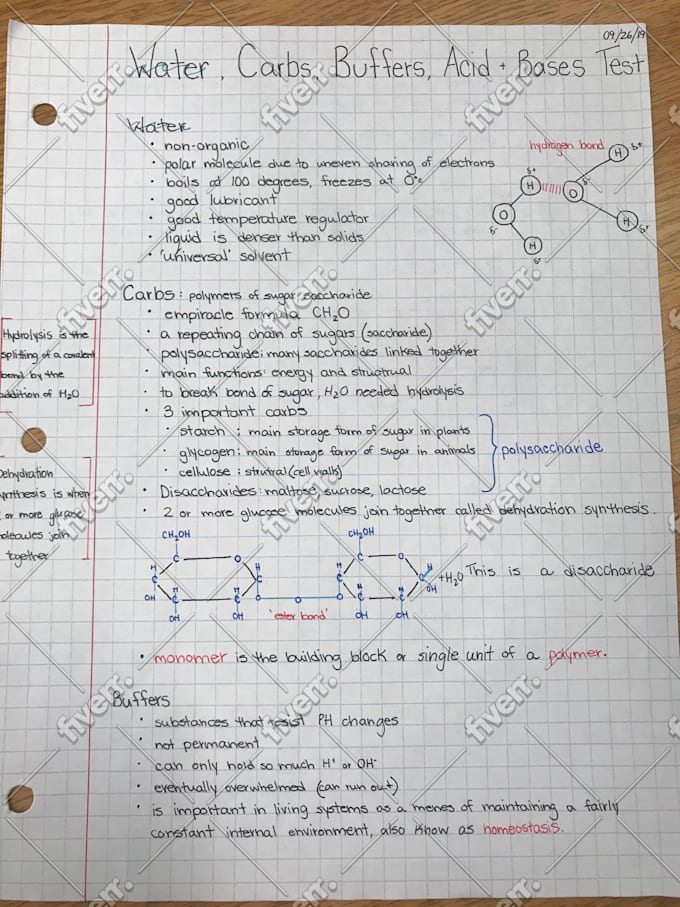 09/26/19
Water, Carbs, Buffers, Acid + Bases Test
Water
• non-organic
• polar molecule due to uneven sharing of electrons
• boils at 100 degrees, freezes at 0°c
• good lubricant
• good temperature regulator
• liquid is denser than solids
• 'universal' solvent
hydrogen bond
H δ+
δ+
H O δ-
O H δ+
δ-
H
δ+
Carbs: polymers of sugar saccharide
• empiracle formula CH₂O
• a repeating chain of sugars (saccharide)
• polysaccharide: many saccharides linked together
• main functions: energy and structrual
• to break bond of sugar, H₂O needed hydrolysis
• 3 important carbs
• starch : main storage form of sugar in plants
• glycogen: main storage form of sugar in animals
• cellulose : strutral (cell walls)
polysaccharide
• Disaccharides: maltose, sucrose, lactose
• 2 or more glucose molecules join together called dehydration synthesis.
Hydrolysis is the
splitting of a covalent
bond by the
addition of H₂O
Dehydration
synthesis is when
or more glucose
molecules join
together
CH₂OH CH₂OH
C O H H C O H
H C C H C C +H₂O This is a disaccharide
OH C C O O O C C OH
OH OH 'ester bond' OH OH
• monomer is the building block or single unit of a polymer.
Buffers
• substances that resist PH changes
• not permanent
• can only hold so much H⁺ or OH⁻
• eventually overwhelmed (can run out)
• is important in living systems as a menes of maintaining a fairly
constant internal environment, also know as homeostasis.
fiverr.